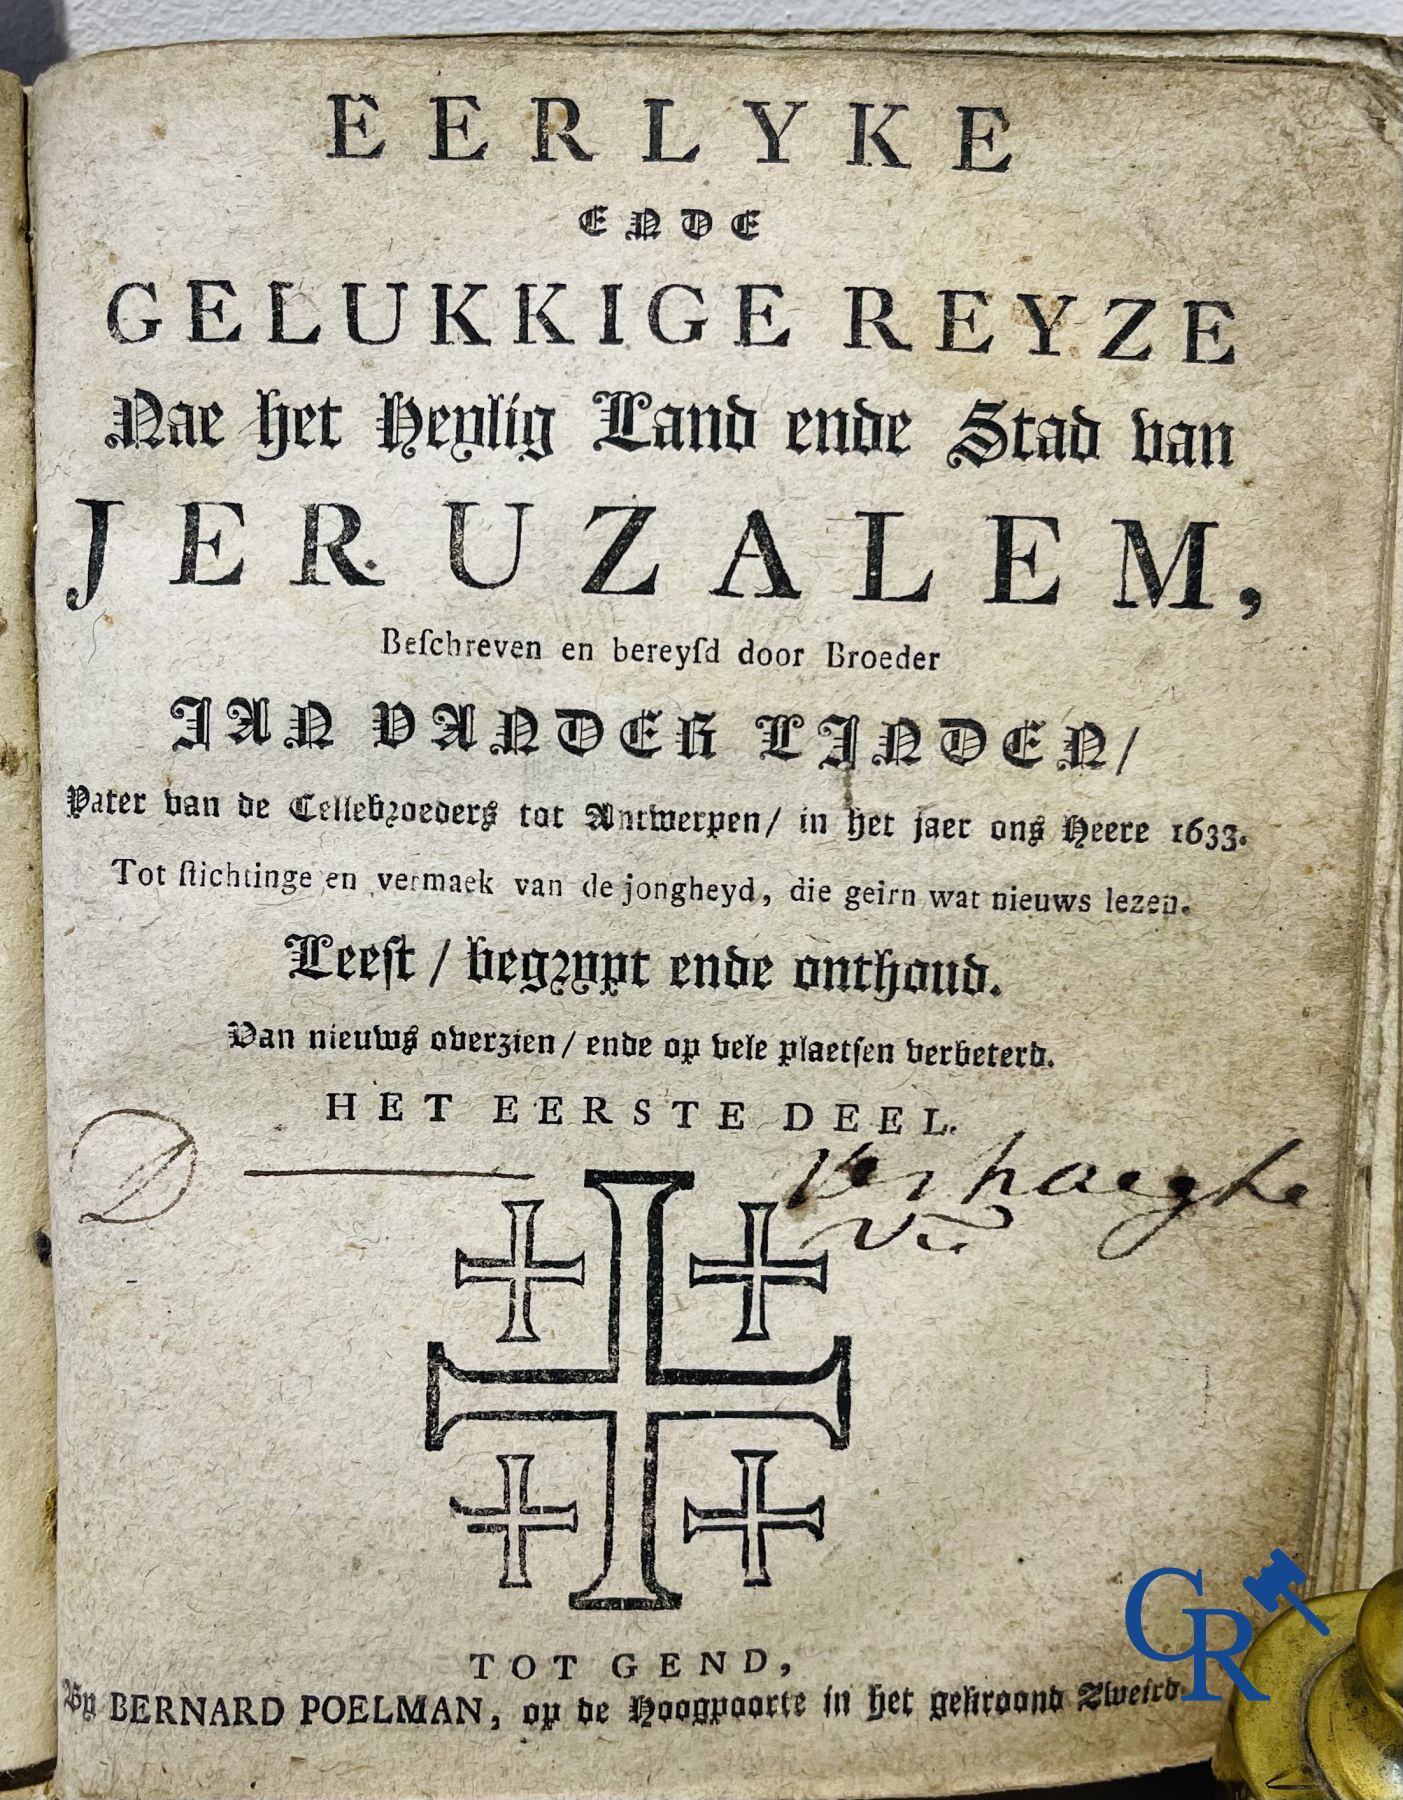 EERLYKE
ENDE
GELUKKIGE REYZE
Nae het Heylig Land ende Stad van
JERUZALEM,
Beſchreven en bereyſd door Broeder
JAN VANDER LINDEN/
Pater van de Cellebroeders tot Antwerpen/ in het jaer ons Heere 1633.
Tot ſtichtinge en vermaek van de jongheyd, die geirn wat nieuws lezen.
Leeſt / begrypt ende onthoud.
Van nieuws overzien / ende op vele plaetſen verbeterd.
HET EERSTE DEEL.
D
Verhaeghe
TOT GEND,
By BERNARD POELMAN, op de Hoogpoorte in het gekroond Zweird.
GR